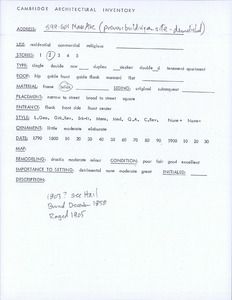 CAMBRIDGE ARCHITECTURAL INVENTORY
ADDRESS: Mass Ave (previous building on site - demolished)
USE: residential commercial religious
STORIES: 1 2 3 4 5
TYPE: single double row duplex decker tenement apartment
ROOF: hip gable front gable flank mansard flat
MATERIAL: frame brick SIDING: original subsequent
PLACEMENT: narrow to street broad to street square
ENTRANCE: flank front side front center
STYLE: L.Geo, Grk.Rev, Ital, Mans, Med, Q.A, C.Rev, None
ORNAMENT: little moderate elaborate
DATE: 1790 1800 10 20 30 40 50 60 70 80 90 1900 10 20 30
MAP:
REMODELING: drastic moderate minor CONDITION: poor fair good excellent
IMPORTANCE TO SETTING: detrimental none moderate great INITIALED:
DESCRIPTION:
1803? see Hail
Burned December 1858
Razed 1905